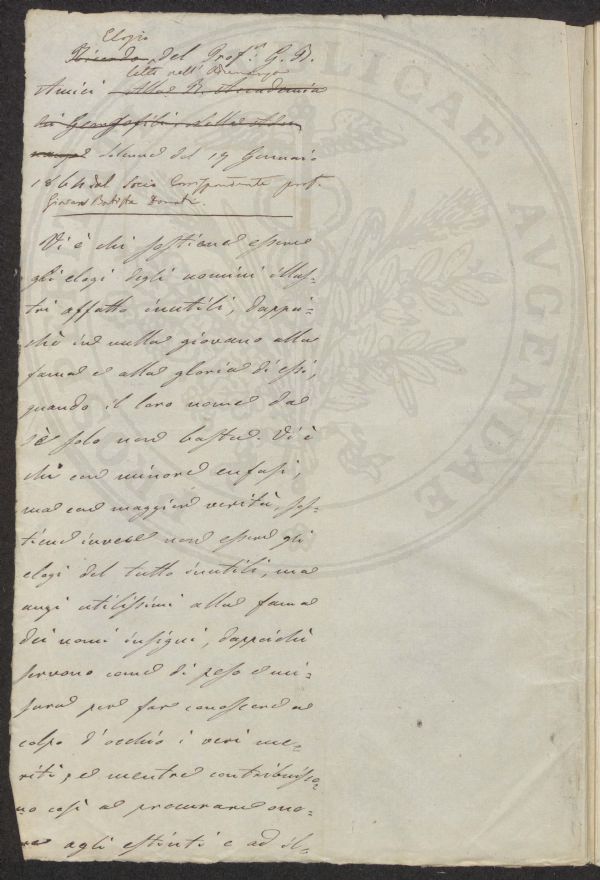 Elogio
Ricordo del Prof.r G. B.
letto nell'Adunanza
Amici alla R. Accademia
dei Georgofili nella Adu-
nanza solenne del 17 Gennaio
1864 dal Socio Corrispondente prof.
Giovan Batista Donati.
Vi è chi sostiene essere
gli elogi degli uomini illus-
tri affatto inutili, dappoi-
chè in nulla giovano alla
fama e alla gloria di essi,
quando il loro nome da
sè solo non basta. Vi è
chi con minore enfasi,
ma con maggior verità, sos-
tiene invece non essere gli
elogi del tutto inutili, ma
anzi utilissimi alla fama
dei nomi insigni, dappoichè
servono come di peso e mi-
sura per far conoscere a
colpo d'occhio i veri me-
riti, e mentre contribuisco-
no così a procurare ono-
re agli estinti e ad il-
PUBLICAE AUGENDAE